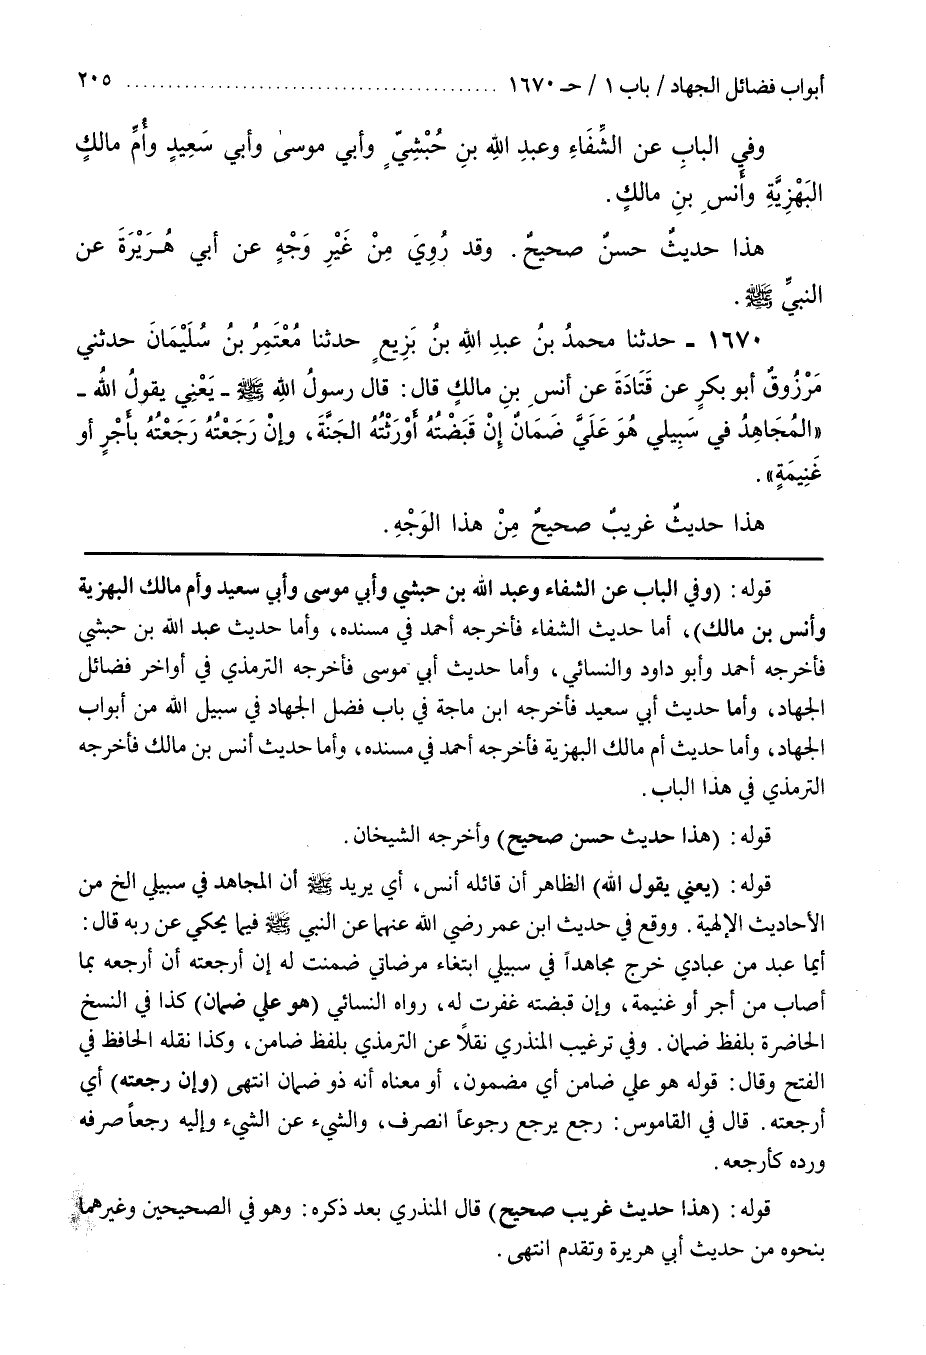 أبواب فضائل الجهاد / باب ١ / حـ ١٦٧٠ ............................................. ٢٠٥
وفي البابِ عن الشِّفَاءِ وعبدِ اللهِ بنِ حُبْشِيّ وأبي موسىٰ وأبي سَعِيدٍ وأُمِّ مالكٍ
البَهْزِيَّةِ وأَنس بنِ مالكٍ.
هذا حديثٌ حسنٌ صحيحٌ. وقد رُوِيَ مِنْ غَيْرِ وَجْهٍ عن أبي هُرَيْرَةَ عن
النبيِّ ﷺ.
١٦٧٠ ـ حدثنا محمدُ بنُ عبدِ اللهِ بنُ بَزِيعٍ حدثنا مُعْتَمِرُ بنُ سُلَيْمَانَ حدثني
مَرْزُوقٌ أبو بكرٍ عن قَتَادَةَ عن أنس بنِ مالكٍ قال: قال رسولُ اللهِ ﷺ ـ يَعْنِي يقولُ اللهُ ـ
«المُجَاهِدُ في سَبِيلي هُوَ عَلَيَّ ضَمَانٌ إِنْ قَبَضْتُهُ أَوْرَثْتُهُ الجَنَّةَ، وإنْ رَجَعْتُهُ رَجَعْتُهُ بأَجْرٍ أو
غَنِيمَةٍ».
هذا حديثٌ غريبٌ صحيحٌ مِنْ هذا الوَجْهِ.
قوله: (وفي الباب عن الشفاء وعبد الله بن حبشي وأبي موسى وأبي سعيد وأم مالك البهزية
وأنس بن مالك)، أما حديث الشفاء فأخرجه أحمد في مسنده، وأما حديث عبد الله بن حبشي
فأخرجه أحمد وأبو داود والنسائي، وأما حديث أبي موسى فأخرجه الترمذي في أواخر فضائل
الجهاد، وأما حديث أبي سعيد فأخرجه ابن ماجة في باب فضل الجهاد في سبيل الله من أبواب
الجهاد، وأما حديث أم مالك البهزية فأخرجه أحمد في مسنده، وأما حديث أنس بن مالك فأخرجه
الترمذي في هذا الباب.
قوله: (هذا حديث حسن صحيح) وأخرجه الشيخان.
قوله: (يعني يقول الله) الظاهر أن قائله أنس، أي يريد ﷺ أن المجاهد في سبيلي الخ من
الأحاديث الإلهية. ووقع في حديث ابن عمر رضي الله عنهما عن النبي ﷺ فيما يحكي عن ربه قال:
أيما عبد من عبادي خرج مجاهداً في سبيلي ابتغاء مرضاتي ضمنت له إن أرجعته أن أرجعه بما
أصاب من أجر أو غنيمة، وإن قبضته غفرت له، رواه النسائي (هو علي ضمان) كذا في النسخ
الحاضرة بلفظ ضمان. وفي ترغيب المنذري نقلاً عن الترمذي بلفظ ضامن، وكذا نقله الحافظ في
الفتح وقال: قوله هو علي ضامن أي مضمون، أو معناه أنه ذو ضمان انتهى (وإن رجعته) أي
أرجعته. قال في القاموس: رجع يرجع رجوعاً انصرف، والشيء عن الشيء وإليه رجعاً صرفه
ورده كأرجعه.
قوله: (هذا حديث غريب صحيح) قال المنذري بعد ذكره: وهو في الصحيحين وغيرهما
بنحوه من حديث أبي هريرة وتقدم انتهى.